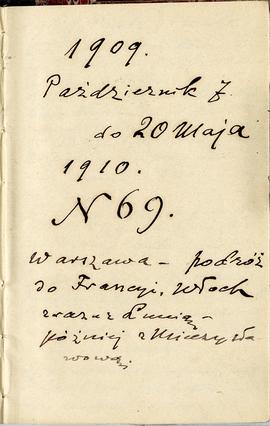 1909.
Październik 7.
do 20 Maja
1910.
N 69.
Warszawa – podróż
do Francyi, Włoch
wraz z
później z Mieczysła
wową